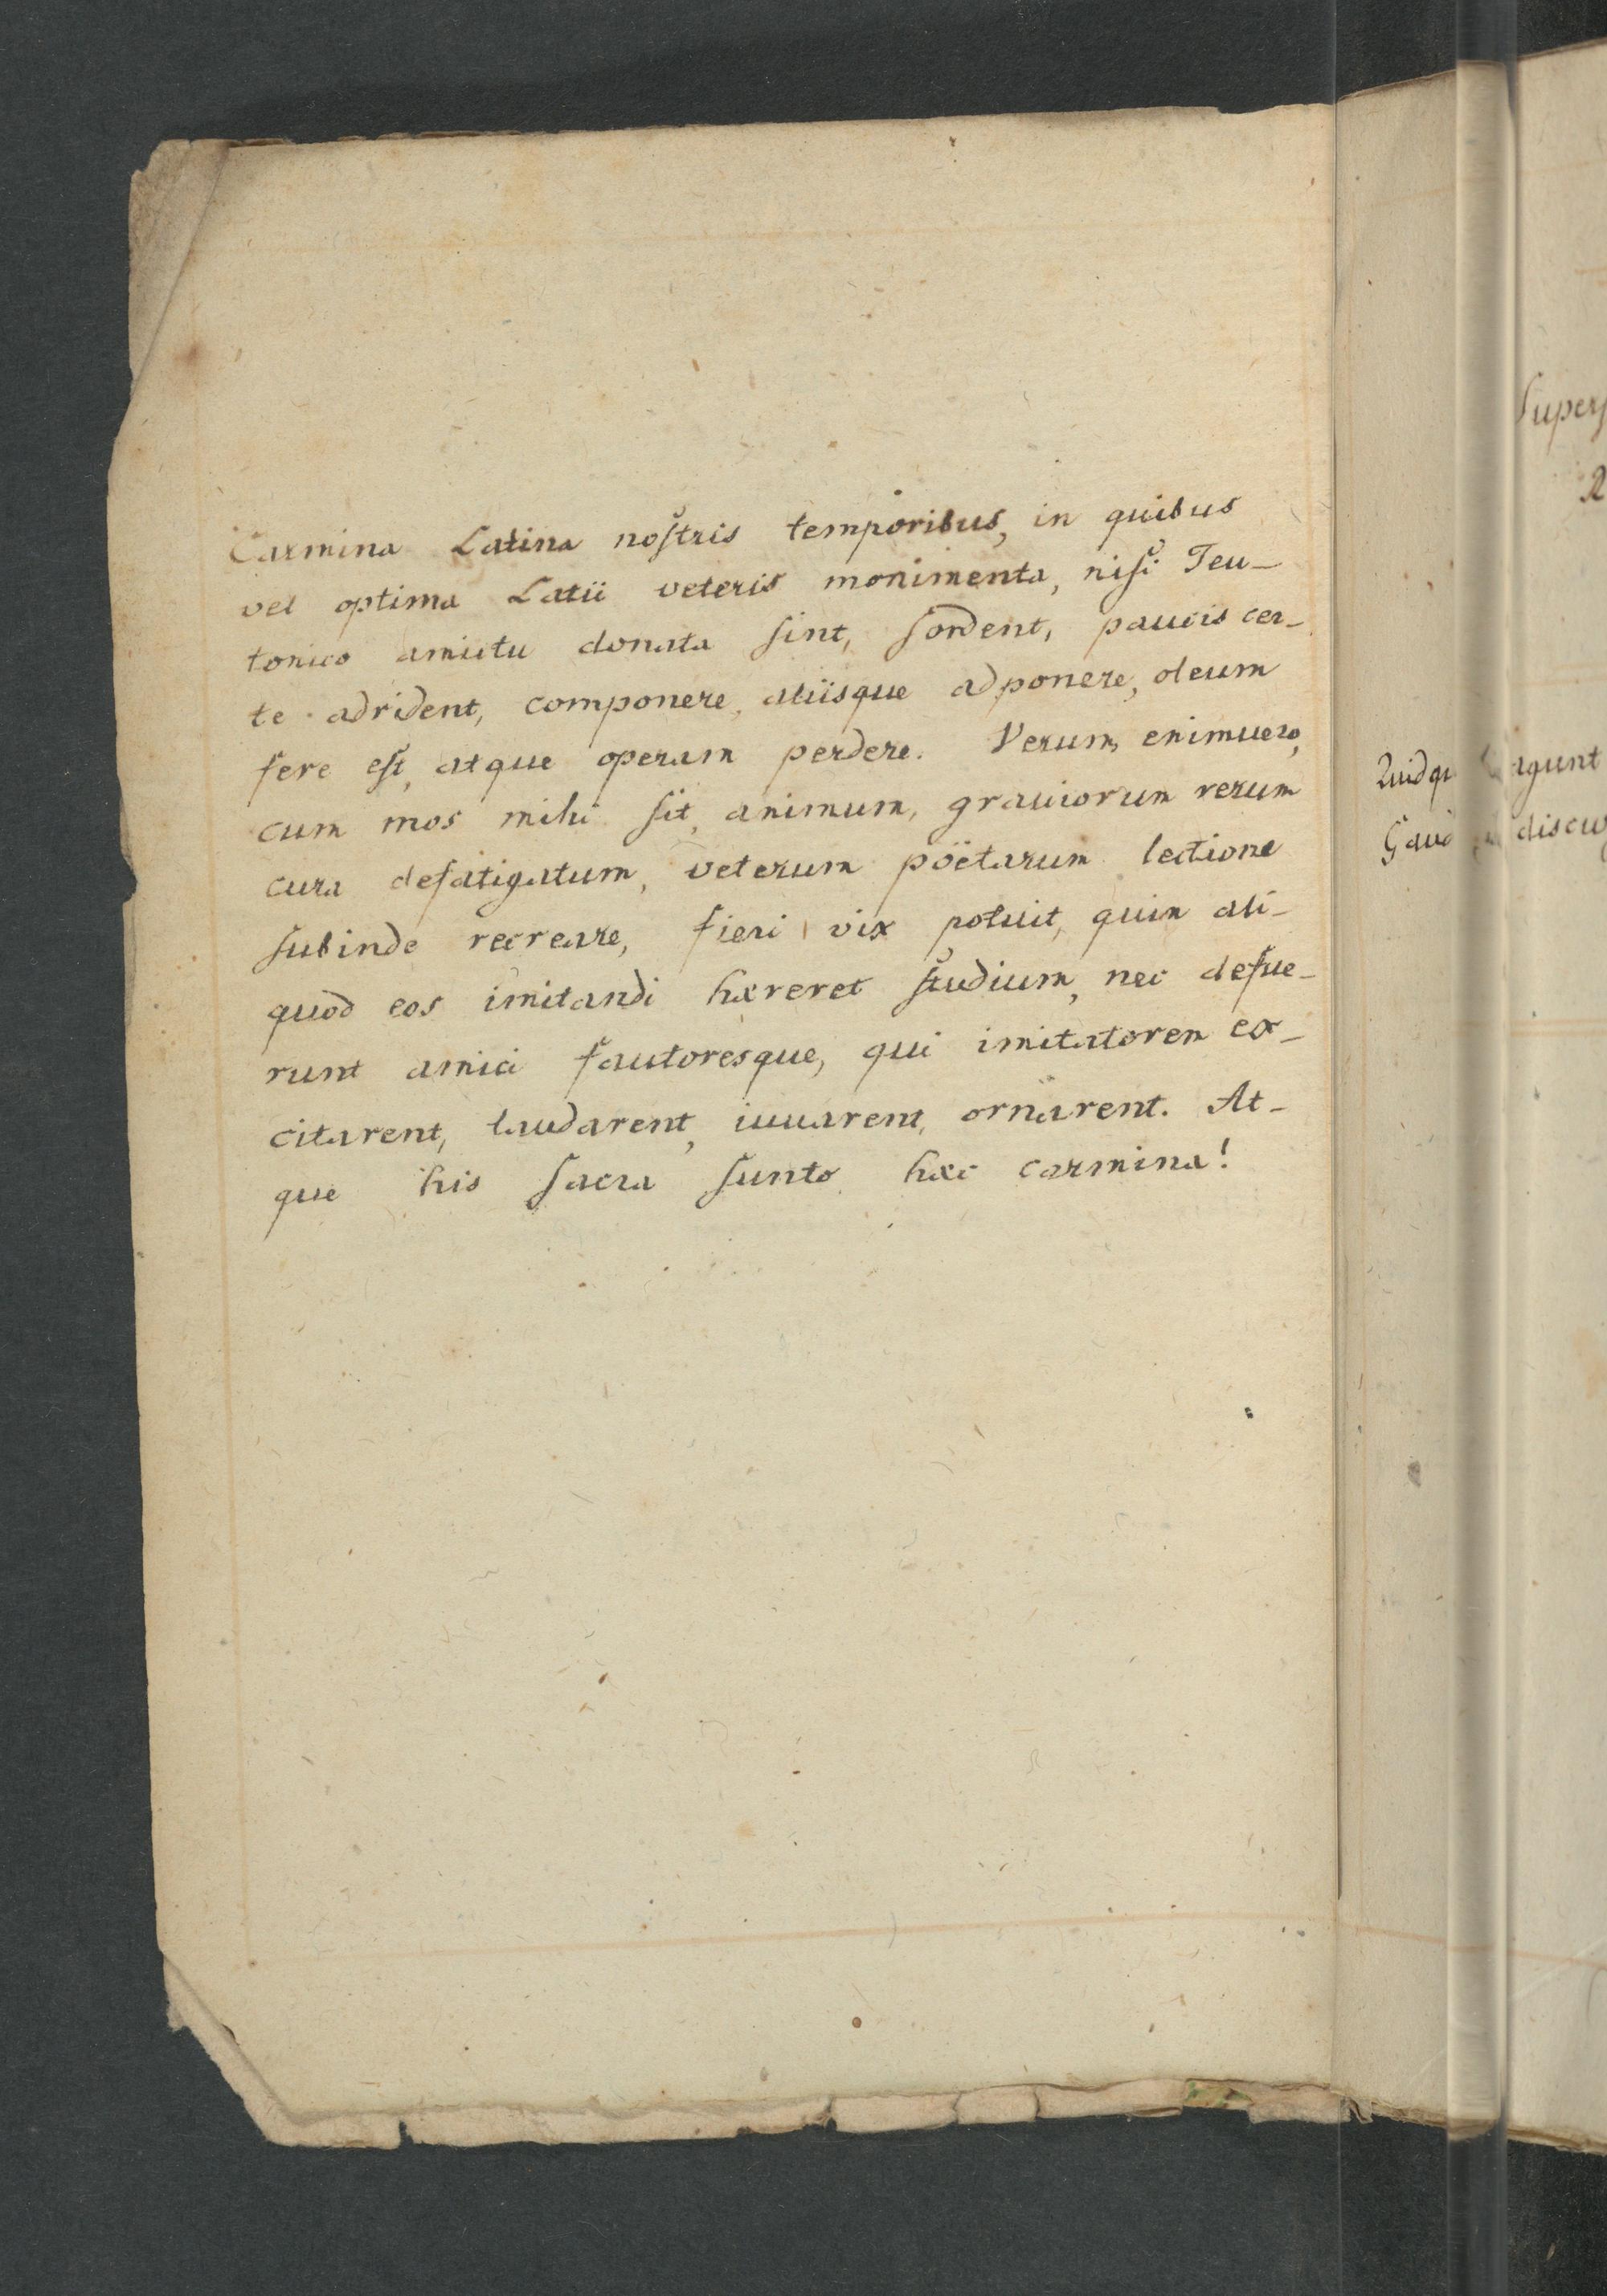 Carmina Latina nostris temporibus, in quibus
vel optima Latii veteris monimenta, nisi Teu-
tonico amictu donata sint, sordent, paucis cer-
te adrident, componere, aliisque adponere, oleum
fere est, atque operam perdere. Verum, enimuero,
cum mos mihi sit, animum, grauiorum rerum
cura defatigatum, veterum poëtarum lectione
subinde recreare, fieri vix potuit, quin ali-
quod eos imitandi hæreret studium, nec defue-
runt amici fautoresque, qui imitatorem ex-
citarent, laudarent, iuuarent, ornarent. At-
que his sacra sunto hæc carmina!
agunt